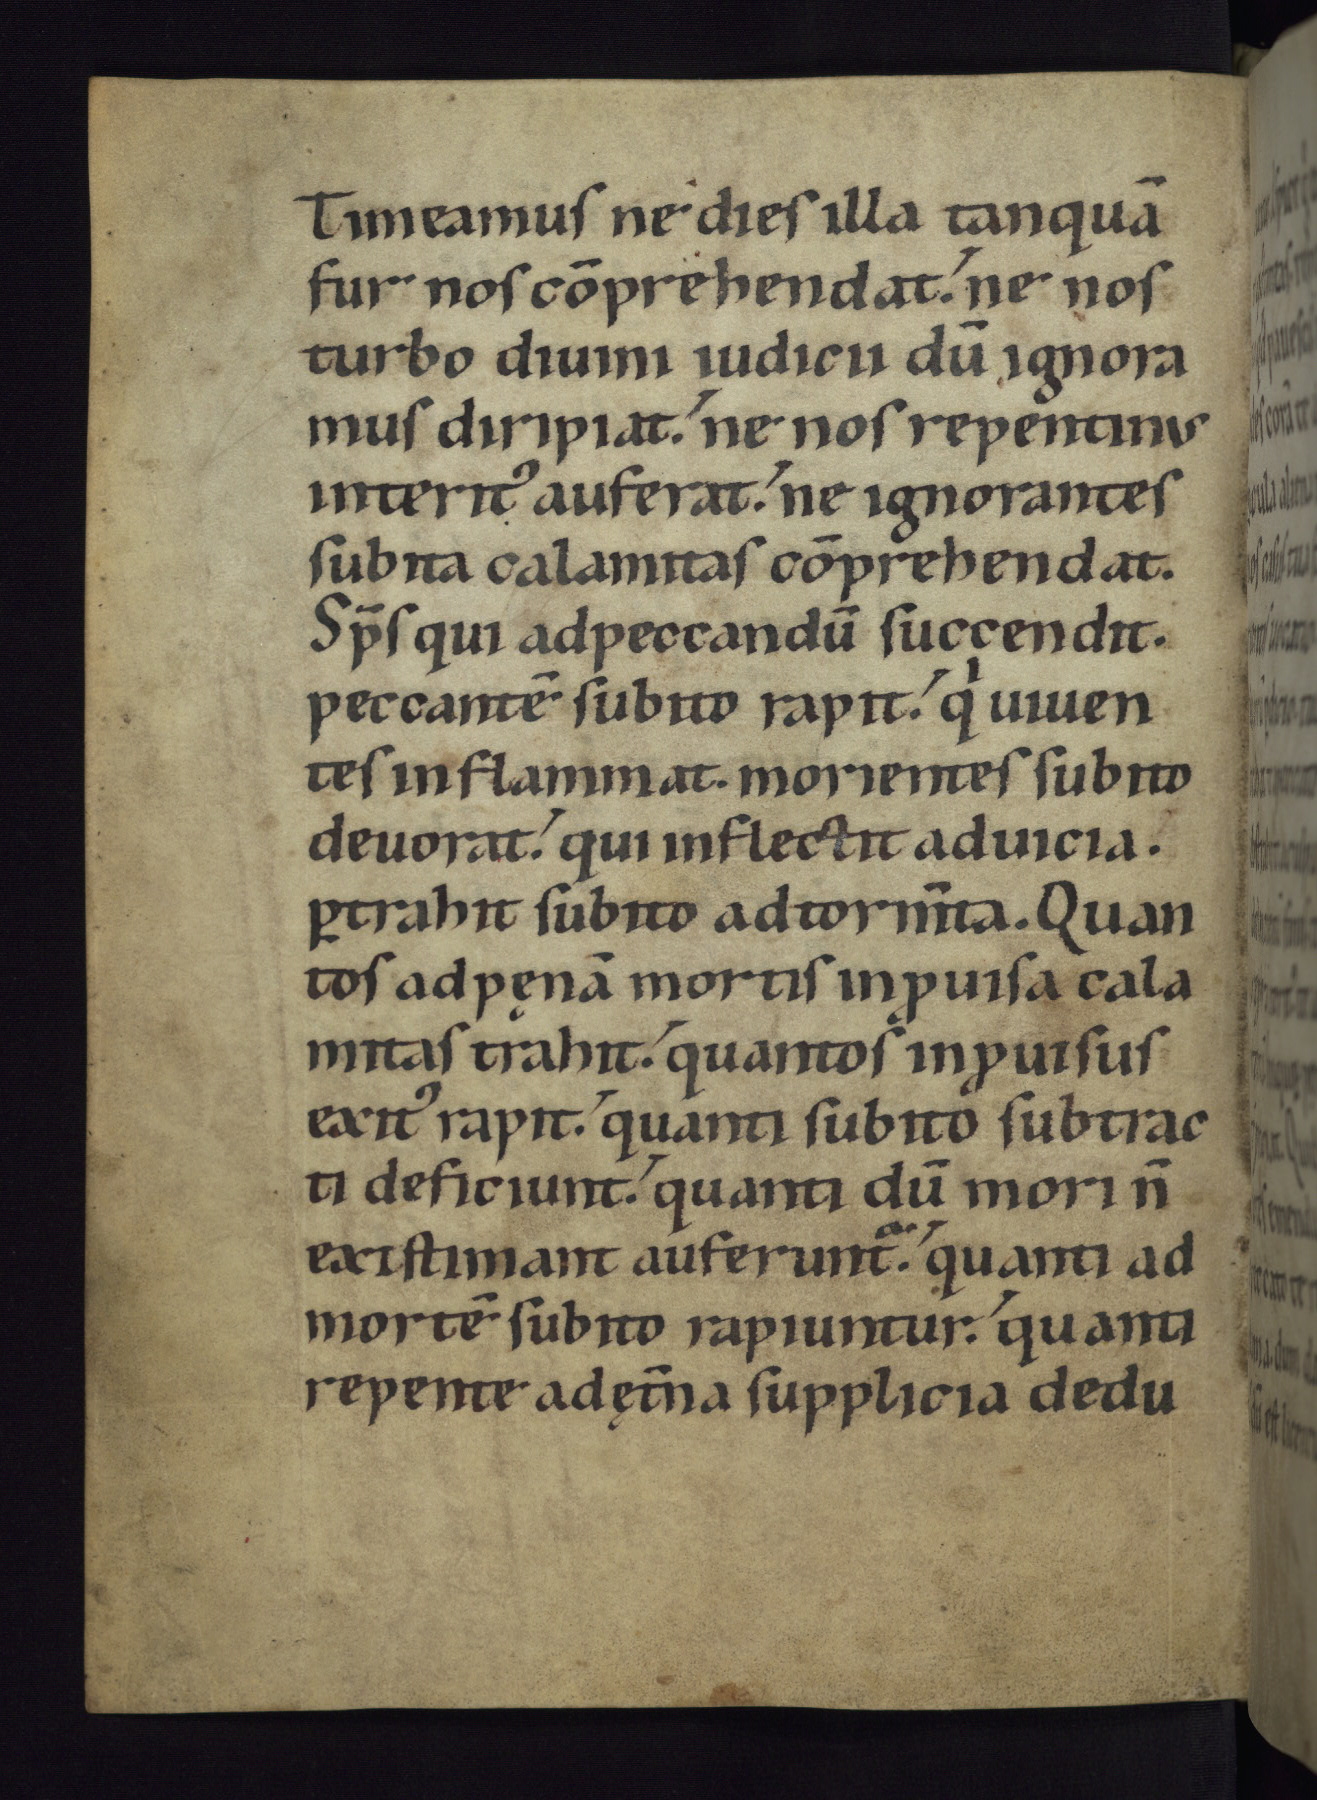 Timeamus ne dies illa tanquā
fur nos cōprehendat. ne nos
turbo diuini iudicii dū ignora
mus diripiat. ne nos repentinus
interit᷒ auferat. ne ignorantes
subita calamitas cōprehendat.
Sp̄s qui adpeccandū succendit.
peccantē subito rapit. qͥ uiuen
tes inflammat. morientes subito
deuorat. qui inflectit aduicia.
ꝑtrahit subito adtorm̄ta. Quan
tos adpęnā mortis inꝓuisa cala
mitas trahit. quantos inꝓuisus
exit᷒ rapit. quanti subito subtrac
ti deficiunt. quanti dū mori n̄
existimant auferunt᷑. quanti ad
mortē subito rapiuntur. quanti
repente adęt̄na supplicia dedu